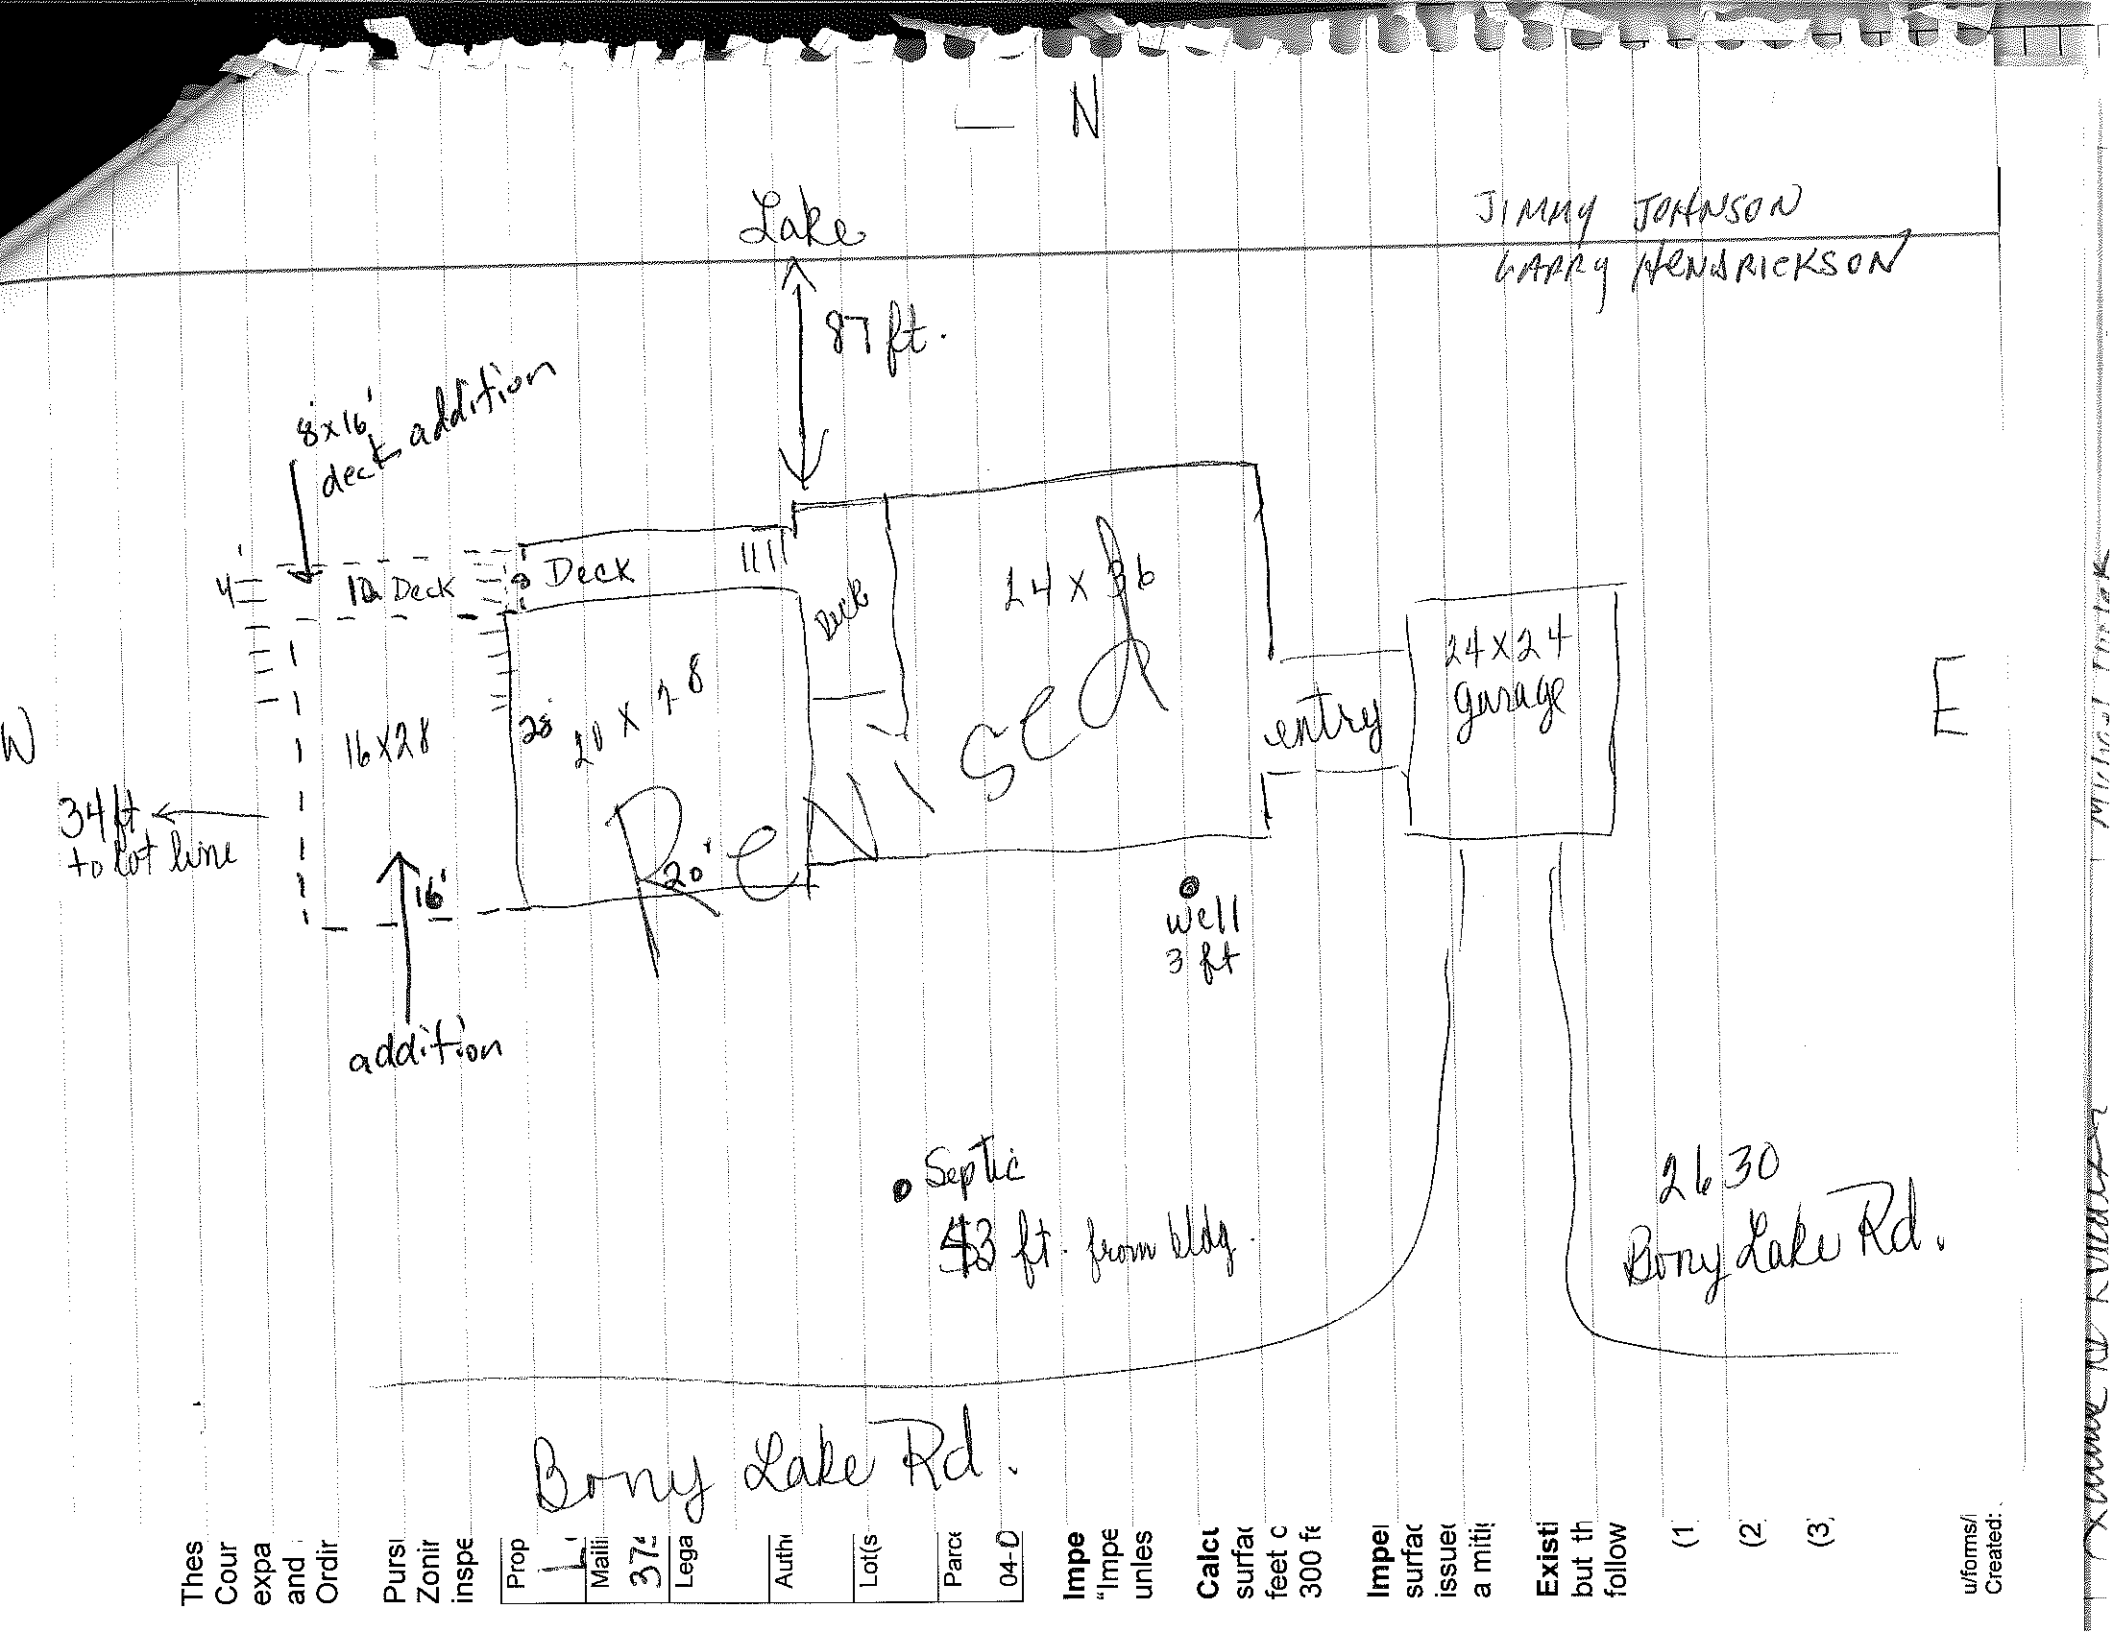 N
Lake
JIMMY JOHNSON
LARRY HENDRICKSON
87 ft.
8'x16'
deck addition
4'
Deck
Deck
Deck
24 x 36
24x24
garage
entry
E
W
16x28
28'
20 x 28
Revised
20'
34 ft
to lot line
16'
addition
well
3 ft
Septic
ft. from bldg.
2630
Bony Lake Rd.
Bony Lake Rd.
Thes
Cour
expa
and
Ordir
Pursu
Zonir
inspe
Prop
Maili
Lega
Auth
Lot(s
Parce
04-0
Impe
"Impe
unles
Calcu
surfac
feet o
300 fe
Imper
surfac
issued
a mitig
Existi
but th
follow
(1
(2
(3)
u/forms/i
Created: